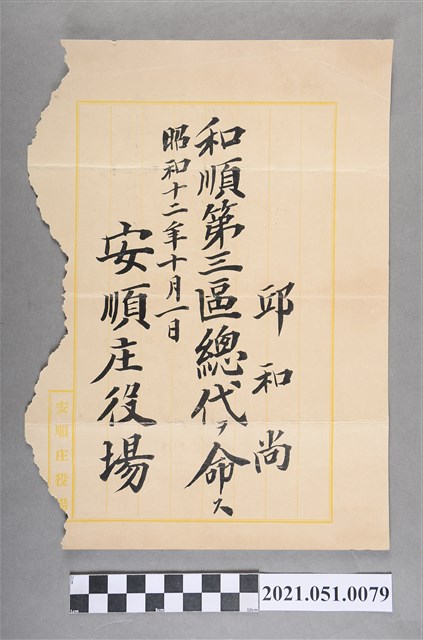 邱和尚
和順第三區總代ヲ命ス
昭和十二年十月一日
安順庄役場
安順庄役場
2021.051.0079